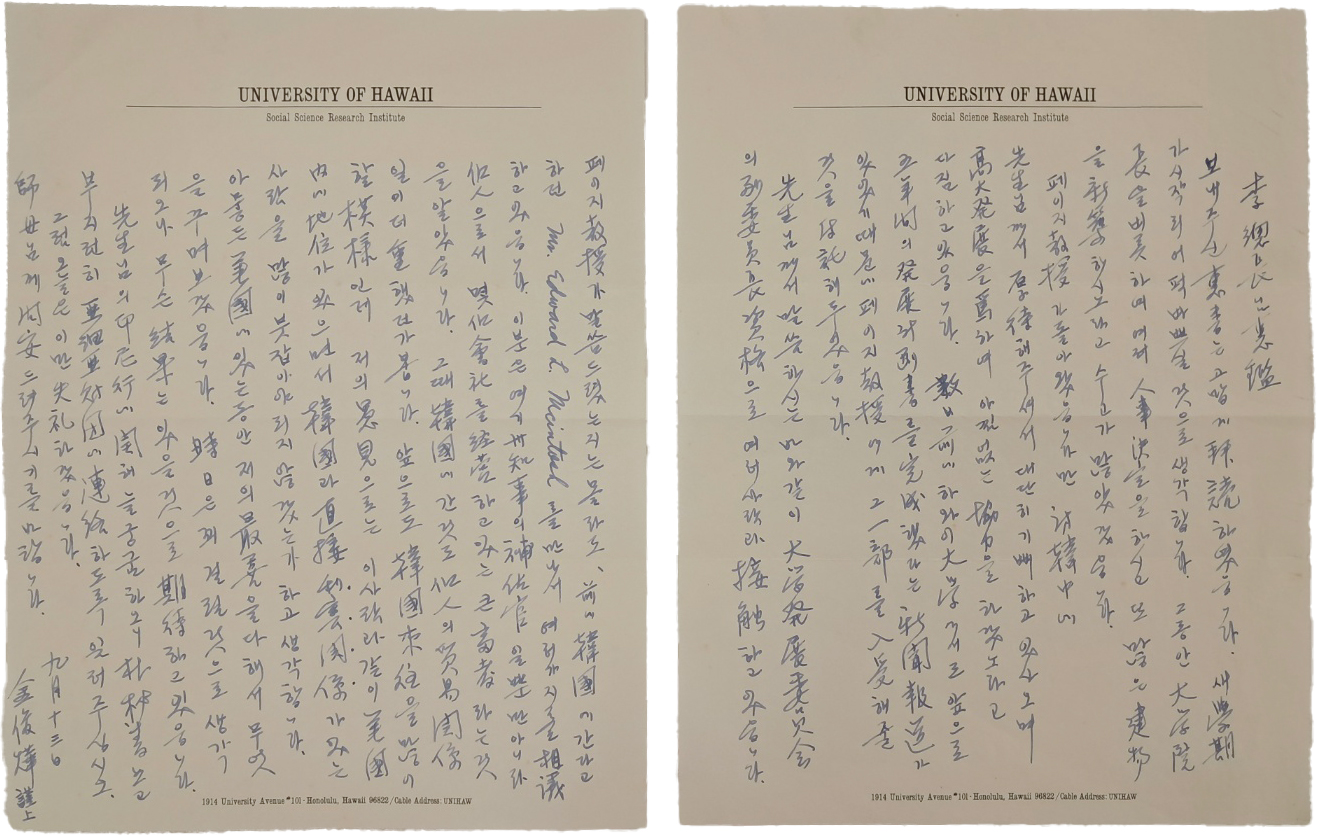 UNIVERSITY OF HAWAII
Social Science Research Institute
李總長님 惠鑑
보내주신 惠書는 고맙게 拜讀하였읍니다. 새學期
가 시작되어 퍽 바쁘실 것으로 생각합니다. 그동안 大學院
長을 비롯하여 여러 人事決定을 하신 또 많은 建物
을 新築하시느라고 수고가 많았겠읍니다.
페이지 敎授가 돌아왔읍니다만 訪韓中에
先生님께서 厚待해주셔서 대단히 기뻐하고 있사오며
高大發展을 爲하여 아낌없는 協力을 하겠노라고
다짐하고 있읍니다. 數日前에 하와이大學에서도 앞으로
五年間의 發展計劃書를 完成했다는 新聞報道가
있었기 때문에 페이지 敎授에게 그 一部를 入手해 줄
것을 付託해 두었읍니다.
先生님께서 말씀하시는 바와 같이 大學發展委員會
의 副委員長 資格으로 여러 사람과 接触하고 있읍니다.
1914 University Avenue #101 · Honolulu, Hawaii 96822/Cable Address: UNIHAW
UNIVERSITY OF HAWAII
Social Science Research Institute
페이지 敎授가 말씀드렸는지는 몰라도, 前에 韓國에 간다고
하던 Mr. Edward L. McIntosh 를 만나서 여러가지를 相議
하고 있읍니다. 이분은 여기 州知事의 補佐官일 뿐만 아니라
個人으로서 몇個 會社를 經營하고 있는 큰 富者라는 것
을 알았읍니다. 그때 韓國에 간 것도 個人의 貿易關係
일이 더 重했던가 봅니다. 앞으로도 韓國來往을 많이
할 模樣인데 저의 愚見으로는 이 사람과 같이 美國
內에 地位가 있으면서 韓國과 直接 利害關係가 있는
사람을 많이 붓잡아야 되지 않겠는가 하고 생각합니다.
아뭏든 美國에 있는 동안 저의 最善을 다해서 무엇
을 꾸며 보겠읍니다. 時日은 꽤 걸릴 것으로 생각
되오나 무슨 結果는 있을 것으로 期待하고 있읍니다.
先生님의 印尼行에 関해 늘 궁금하오니 朴 秘書 보고
부지런히 亞細亞財団에 連絡하도록 일러 주십시오.
그럼 오늘은 이만 失礼하겠읍니다.
師母님께 問安드려주시기를 바랍니다.
九月十三日
金俊燁 謹上
1914 University Avenue #101 · Honolulu, Hawaii 96822/Cable Address: UNIHAW